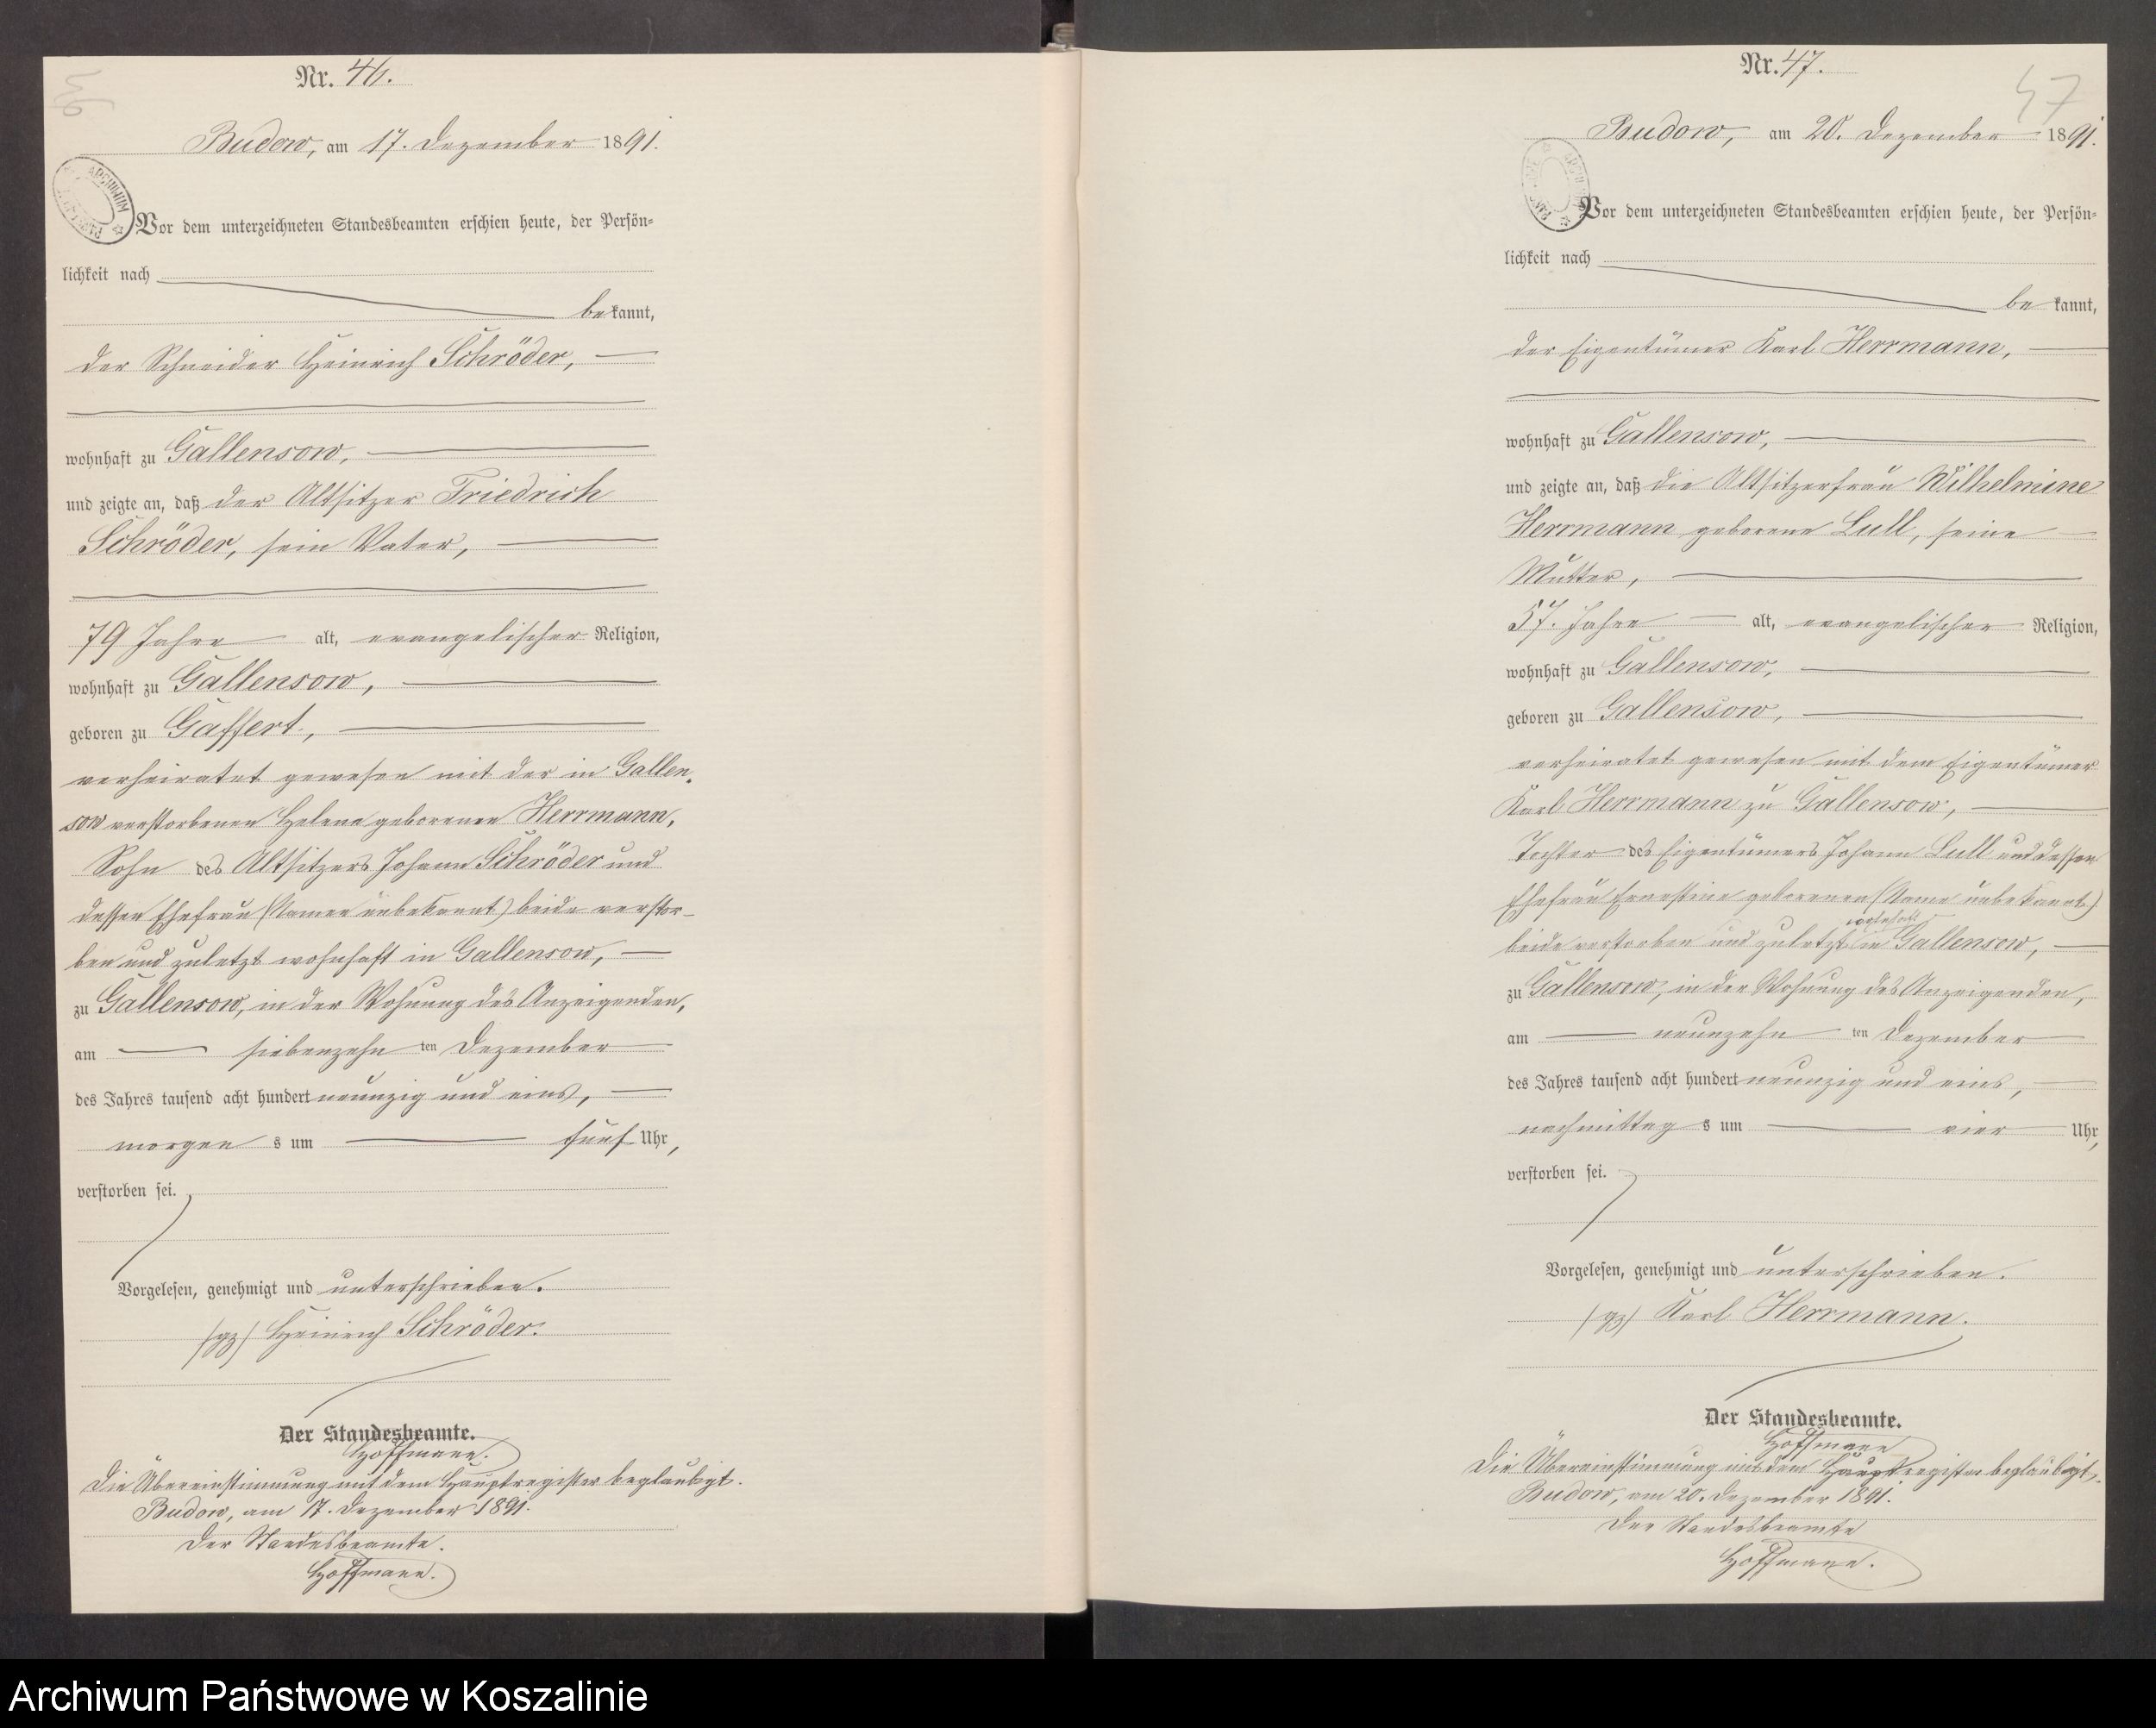 Nr. 46.
Budow, am 17. Dezember 1891.
Vor dem unterzeichneten Standesbeamten erschien heute, der Persön=
lichkeit nach
bekannt,
der Schneider Heinrich Schröder,
wohnhaft zu Gallensow,
und zeigte an, daß der Altsitzer Friedrich
Schröder, sein Vater,
79 Jahre alt, evangelischer Religion,
wohnhaft zu Gallensow,
geboren zu Gaffert,
verheiratet gewesen mit der in Gallen-
sow verstorbenen Helene geborenen Herrmann,
Sohn des Altsitzers Johann Schröder und
dessen Ehefrau (Namen unbekannt) beide verstor-
ben und zuletzt wohnhaft in Gallensow,
zu Gallensow, in der Wohnung des Anzeigenden,
am siebenzehn ten Dezember
des Jahres tausend acht hundert neunzig und eins,
morgen s um fünf Uhr,
verstorben sei.
Vorgelesen, genehmigt und unterschrieben.
(gz) Heinrich Schröder.
Der Standesbeamte.
Hoffmann.
Die Übereinstimmung mit dem Hauptregister beglaubigt.
Budow, am 17. Dezember 1891.
Der Standesbeamte.
Hoffmann.
Nr. 47.
47
Budow, am 20. Dezember 1891.
Vor dem unterzeichneten Standesbeamten erschien heute, der Persön=
lichkeit nach
be kannt,
der Eigentümer Karl Herrmann,
wohnhaft zu Gallensow,
und zeigte an, daß die Altsitzerfrau Wilhelmine
Herrmann geborene Lull, seine
Mutter,
57. Jahre alt, evangelischer Religion,
wohnhaft zu Gallensow,
geboren zu Gallensow,
verheiratet gewesen mit dem Eigentümer
Karl Herrmann zu Gallensow,
Tochter des Eigentümers Johann Lull und dessen
Ehefrau Ernestine geborenen (Name unbekannt)
beide verstorben und zuletzt wohnhaft in Gallensow,
zu Gallensow, in der Wohnung des Anzeigenden,
am neunzehn ten Dezember
des Jahres tausend acht hundert neunzig und eins,
nachmittag s um vier Uhr,
verstorben sei.
Vorgelesen, genehmigt und unterschrieben.
(gz) Karl Herrmann.
Der Standesbeamte.
Hoffmann
Die Übereinstimmung mit dem Hauptregister beglaubigt.
Budow, am 20. Dezember 1891.
Der Standesbeamte
Hoffmann.
Archiwum Państwowe w Koszalinie